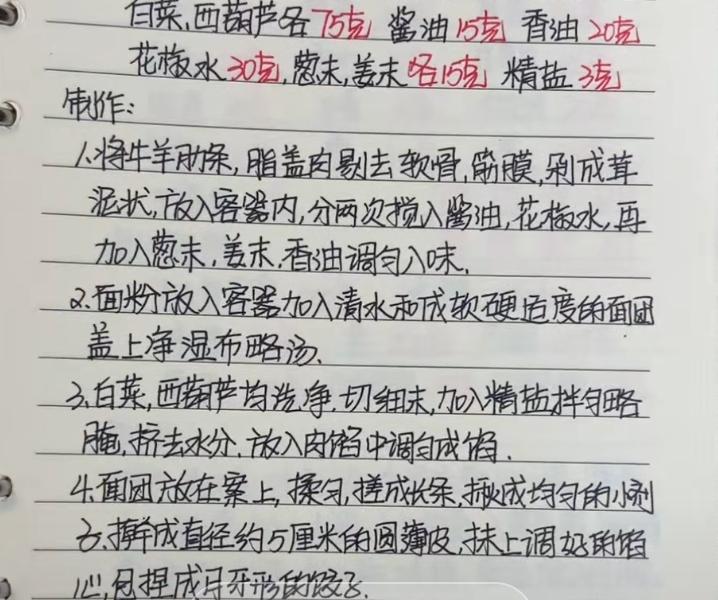 白菜,西葫芦各75克 酱油15克 香油20克
花椒水30克,葱末,姜末各15克 精盐3克
制作:
1.将牛羊肋条,脂盖肉剔去软骨,筋膜,剁成茸
泥状,放入容器内,分两次搅入酱油,花椒水,再
加入葱末,姜末.香油调匀入味.
2.面粉放入容器加入清水和成软硬适度的面团
盖上净湿布略汤.
3.白菜,西葫芦均洗净.切细末,加入精盐拌匀略
腌,挤去水分.放入肉馅中调匀成馅.
4.面团放在案上,揉匀,搓成长条,揪成均匀的小剂
子.擀成直径约5厘米的圆薄皮,抹上调好的馅
心,包捏成月牙形的饺子.